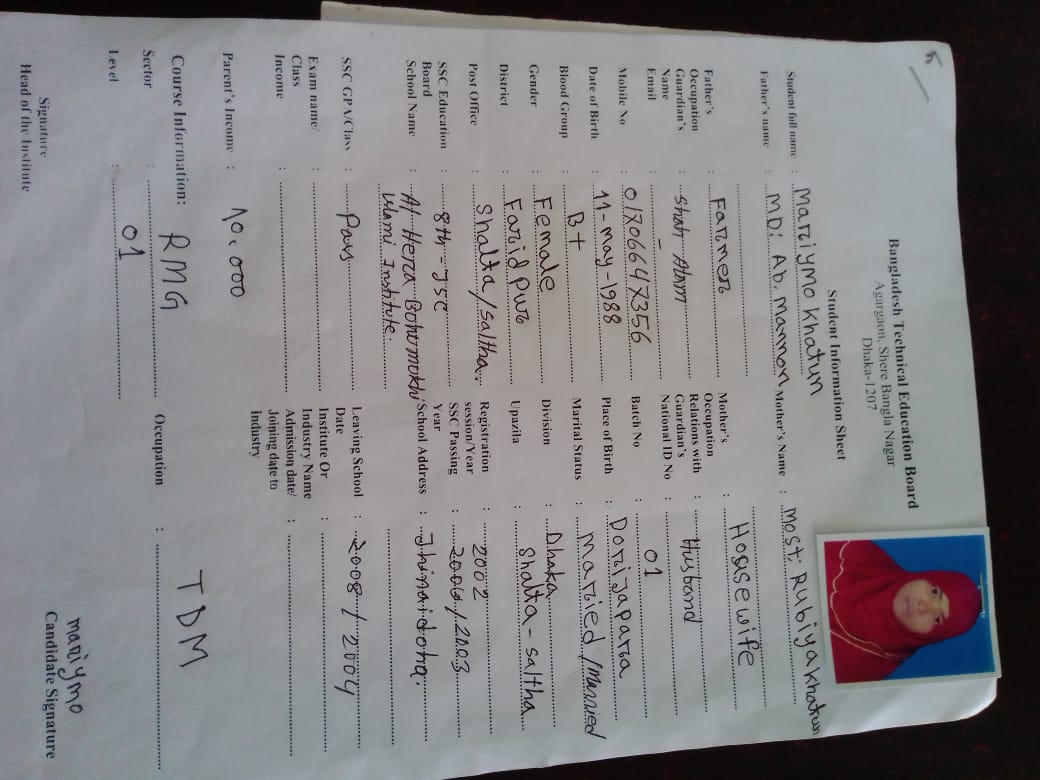 Bangladesh Technical Education Board
Agargaon, Shere Bangla Nagar
Dhaka-1207
Student Information Sheet
Student full name : Mariymo Khatun
Father's name : MD: Ab. Mannon Mother's Name : Most: Rubiya Khatun
Father's Occupation : Farmer Mother's Occupation : Hosisewife
Guardian's Name : Shah Alam Relations with Guardian's : Husband
Email : National ID No :
Mobile No : 01706647356 Batch No : 01
Date of Birth : 11-May-1988 Place of Birth : Dorijapara
Blood Group : B+ Marital Status : maried/married
Gender : Female Division : Dhaka
District : Faridpur Upazila : Shalta-saltha
Post Office : Shalta/saltha. Registration session/Year : 2002
SSC Education Board : 8th-JSC SSC Passing Year : 2003
School Name : Al Hera Bohumokhi School Address : Jhinaidoha.
Islami Institute.
SSC GPA/Class : Pass Leaving School Date : 2008/2004
Exam name/Class : Institute Or Industry Name :
Income : Admission date/Joining date to Industry :
Parent's Income : 10.0000
Course Information:
Sector : RMG Occupation : TDM
Level : 01
mariymo
Signature
Head of the Institute
Candidate Signature